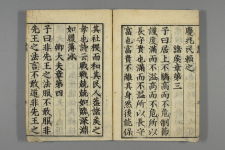 慶兆民賴之
諸侯章第三
子曰居上不驕高而不危制節
謹度滿而不溢高而不危所以
長守貴也滿而不溢所以長守
富也富貴不離其身然後能保
其社稷而和其民人蓋諸侯之
孝也詩云戰戰兢兢如臨深淵
如履薄冰
卿大夫章第四
子曰非先王之法服不敢服非
先王之法言不敢道非先王之